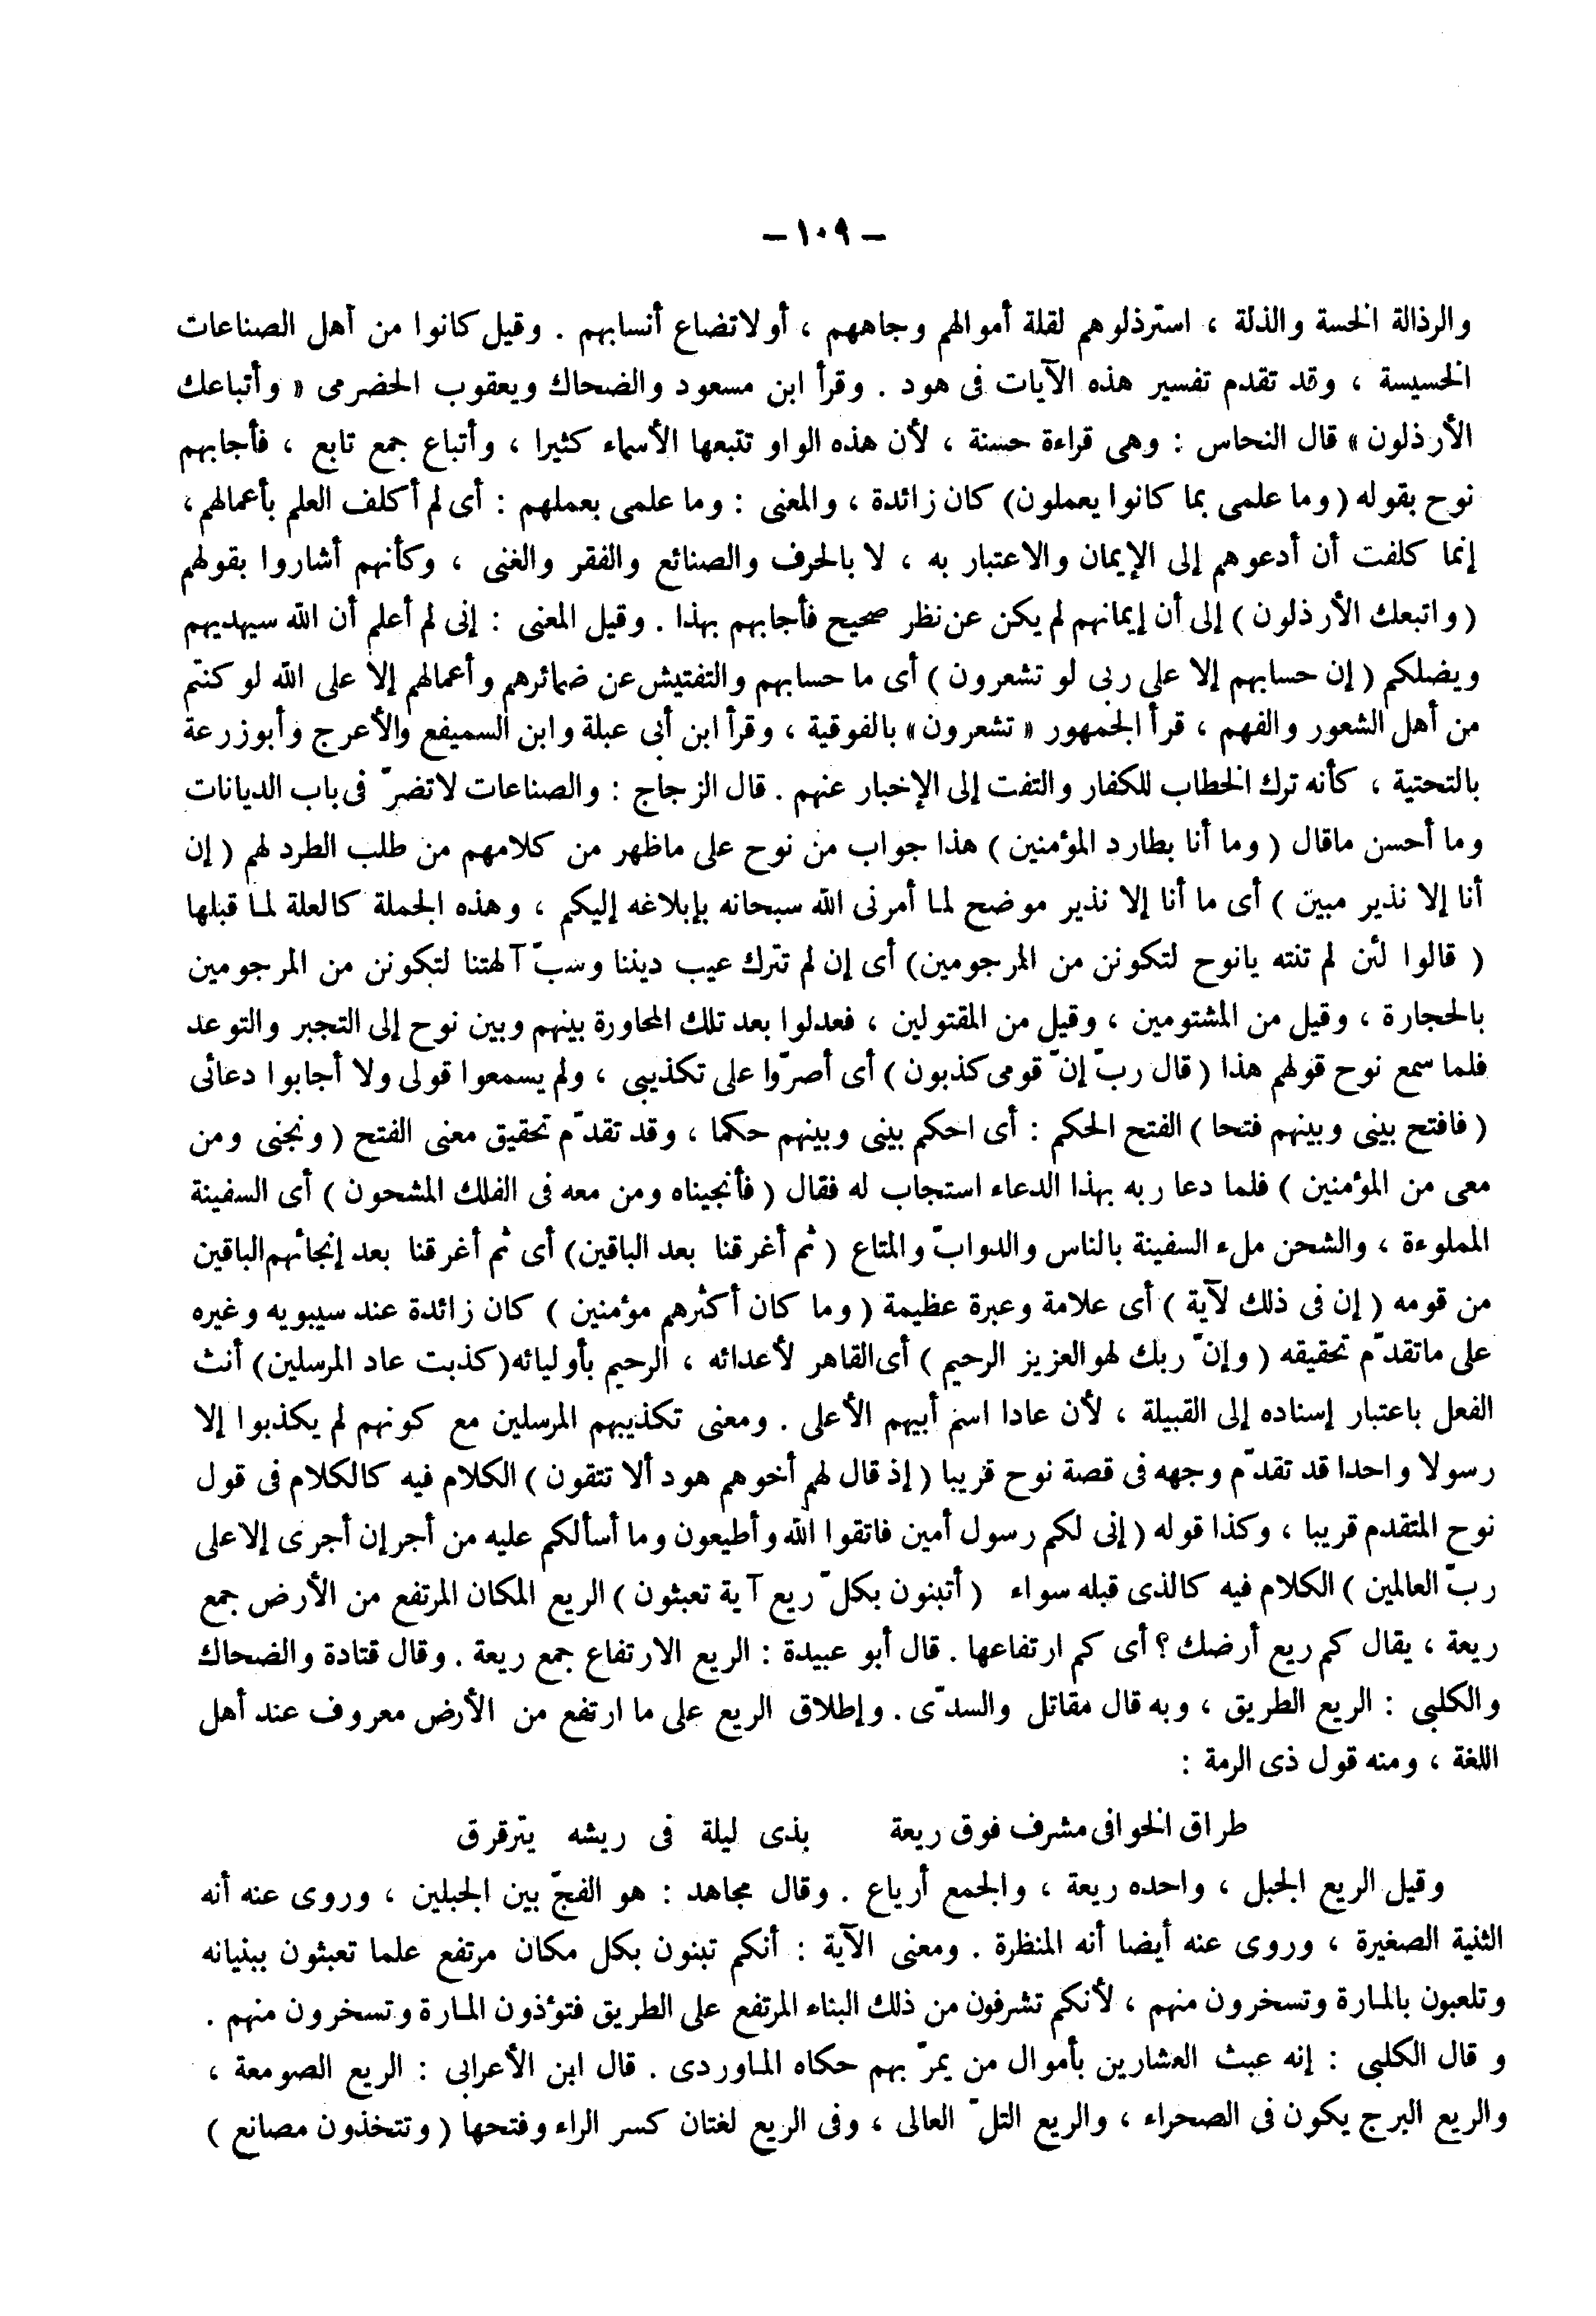 – ١٠٩ –
والرذالة الخسة والذلة ، استرذلوهم لقلة أموالهم وجاههم ، أو لاتضاع أنسابهم . وقيل كانوا من أهل الصناعات
الخسيسة ، وقد تقدم تفسير هذه الآيات فى هود . وقرأ ابن مسعود والضحاك ويعقوب الحضرمى « وأتباعك
الأرذلون » قال النحاس : وهى قراءة حسنة ، لأن هذه الواو تتبعها الأسماء كثيرا ، وأتباع جمع تابع ، فأجابهم
نوح بقوله ( وما علمى بما كانوا يعملون) كان زائدة ، والمعنى : وما علمى بعملهم : أى لم أكلف العلم بأعمالهم ،
إنما كلفت أن أدعوهم إلى الإيمان والاعتبار به ، لا بالحرف والصنائع والفقر والغنى ، وكأنهم أشاروا بقولهم
( واتبعك الأرذلون ) إلى أن إيمانهم لم يكن عن نظر صحيح فأجابهم بهذا . وقيل المعنى : إنى لم أعلم أن الله سيهديهم
ويضلكم ( إن حسابهم إلا على ربى لو تشعرون ) أى ما حسابهم والتفتيش عن ضمائرهم وأعمالهم إلا على الله لو كنتم
من أهل الشعور والفهم ، قرأ الجمهور « تشعرون » بالفوقية ، وقرأ ابن أبى عبلة وابن السميفع والأعرج وأبوزرعة
بالتحتية ، كأنه ترك الخطاب للكفار والتفت إلى الإخبار عنهم . قال الزجاج : والصناعات لاتضرّ فى باب الديانات
وما أحسن ماقال ( وما أنا بطارد المؤمنين ) هذا جواب من نوح على ماظهر من كلامهم من طلب الطرد لهم ( إن
أنا إلا نذير مبين ) أى ما أنا إلا نذير موضح لما أمرنى الله سبحانه بإبلاغه إليكم ، وهذه الجملة كالعلة لما قبلها
( قالوا لئن لم تنته يانوح لتكونن من المرجومين) أى إن لم تترك عيب ديننا وسبّ آلهتنا لتكونن من المرجومين
بالحجارة ، وقيل من المشتومين ، وقيل من المقتولين ، فعدلوا بعد تلك المحاورة بينهم وبين نوح إلى التجبر والتوعد
فلما سمع نوح قولهم هذا ( قال ربّ إنّ قومى كذبون ) أى أصرّوا على تكذيبى ، ولم يسمعوا قولى ولا أجابوا دعائى
( فافتح بينى وبينهم فتحا ) الفتح الحكم : أى احكم بينى وبينهم حكما ، وقد تقدّم تحقيق معنى الفتح ( ونجنى ومن
معى من المؤمنين ) فلما دعا ربه بهذا الدعاء استجاب له فقال ( فأنجيناه ومن معه فى الفلك المشحون ) أى السفينة
المملوءة ، والشحن ملء السفينة بالناس والدوابّ والمتاع ( ثم أغرقنا بعد الباقين) أى ثم أغرقنا بعد إنجائهم الباقين
من قومه ( إن فى ذلك لآية ) أى علامة وعبرة عظيمة ( وما كان أكثرهم مؤمنين ) كان زائدة عند سيبويه وغيره
على ماتقدّم تحقيقه ( وإنّ ربك لهو العزيز الرحيم ) أى القاهر لأعدائه ، الرحيم بأوليائه(كذبت عاد المرسلين) أنث
الفعل باعتبار إسناده إلى القبيلة ، لأن عادا اسم أبيهم الأعلى . ومعنى تكذيبهم المرسلين مع كونهم لم يكذبوا إلا
رسولا واحدا قد تقدّم وجهه فى قصة نوح قريبا ( إذ قال لهم أخوهم هود ألا تتقون ) الكلام فيه كالكلام فى قول
نوح المتقدم قريبا ، وكذا قوله ( إنى لكم رسول أمين فاتقوا الله وأطيعون وما أسألكم عليه من أجر إن أجرى إلا على
ربّ العالمين ) الكلام فيه كالذى قبله سواء ( أتبنون بكلّ ريع آية تعبثون ) الريع المكان المرتفع من الأرض جمع
ريعة ، يقال كم ريع أرضك ؟ أى كم ارتفاعها . قال أبو عبيدة : الريع الارتفاع جمع ريعة . وقال قتادة والضحاك
والكلبى : الريع الطريق ، وبه قال مقاتل والسدّى . وإطلاق الريع على ما ارتفع من الأرض معروف عند أهل
اللغة ، ومنه قول ذى الرمة :
طراق الخوافى مشرف فوق ريعة بذى ليلة فى ريشه يترقرق
وقيل الريع الجبل ، واحده ريعة ، والجمع أرياع . وقال مجاهد : هو الفجّ بين الجبلين ، وروى عنه أنه
الثنية الصغيرة ، وروى عنه أيضا أنه المنظرة . ومعنى الآية : أنكم تبنون بكل مكان مرتفع علما تعبثون ببنيانه
وتلعبون بالمارة وتسخرون منهم ، لأنكم تشرفون من ذلك البناء المرتفع على الطريق فتؤذون المارة وتسخرون منهم .
و قال الكلبى : إنه عبث العشارين بأموال من يمرّ بهم حكاه الماوردى . قال ابن الأعرابى : الريع الصومعة ،
والريع البرج يكون فى الصحراء ، والريع التلّ العالى ، وفى الريع لغتان كسر الراء وفتحها ( وتتخذون مصانع )